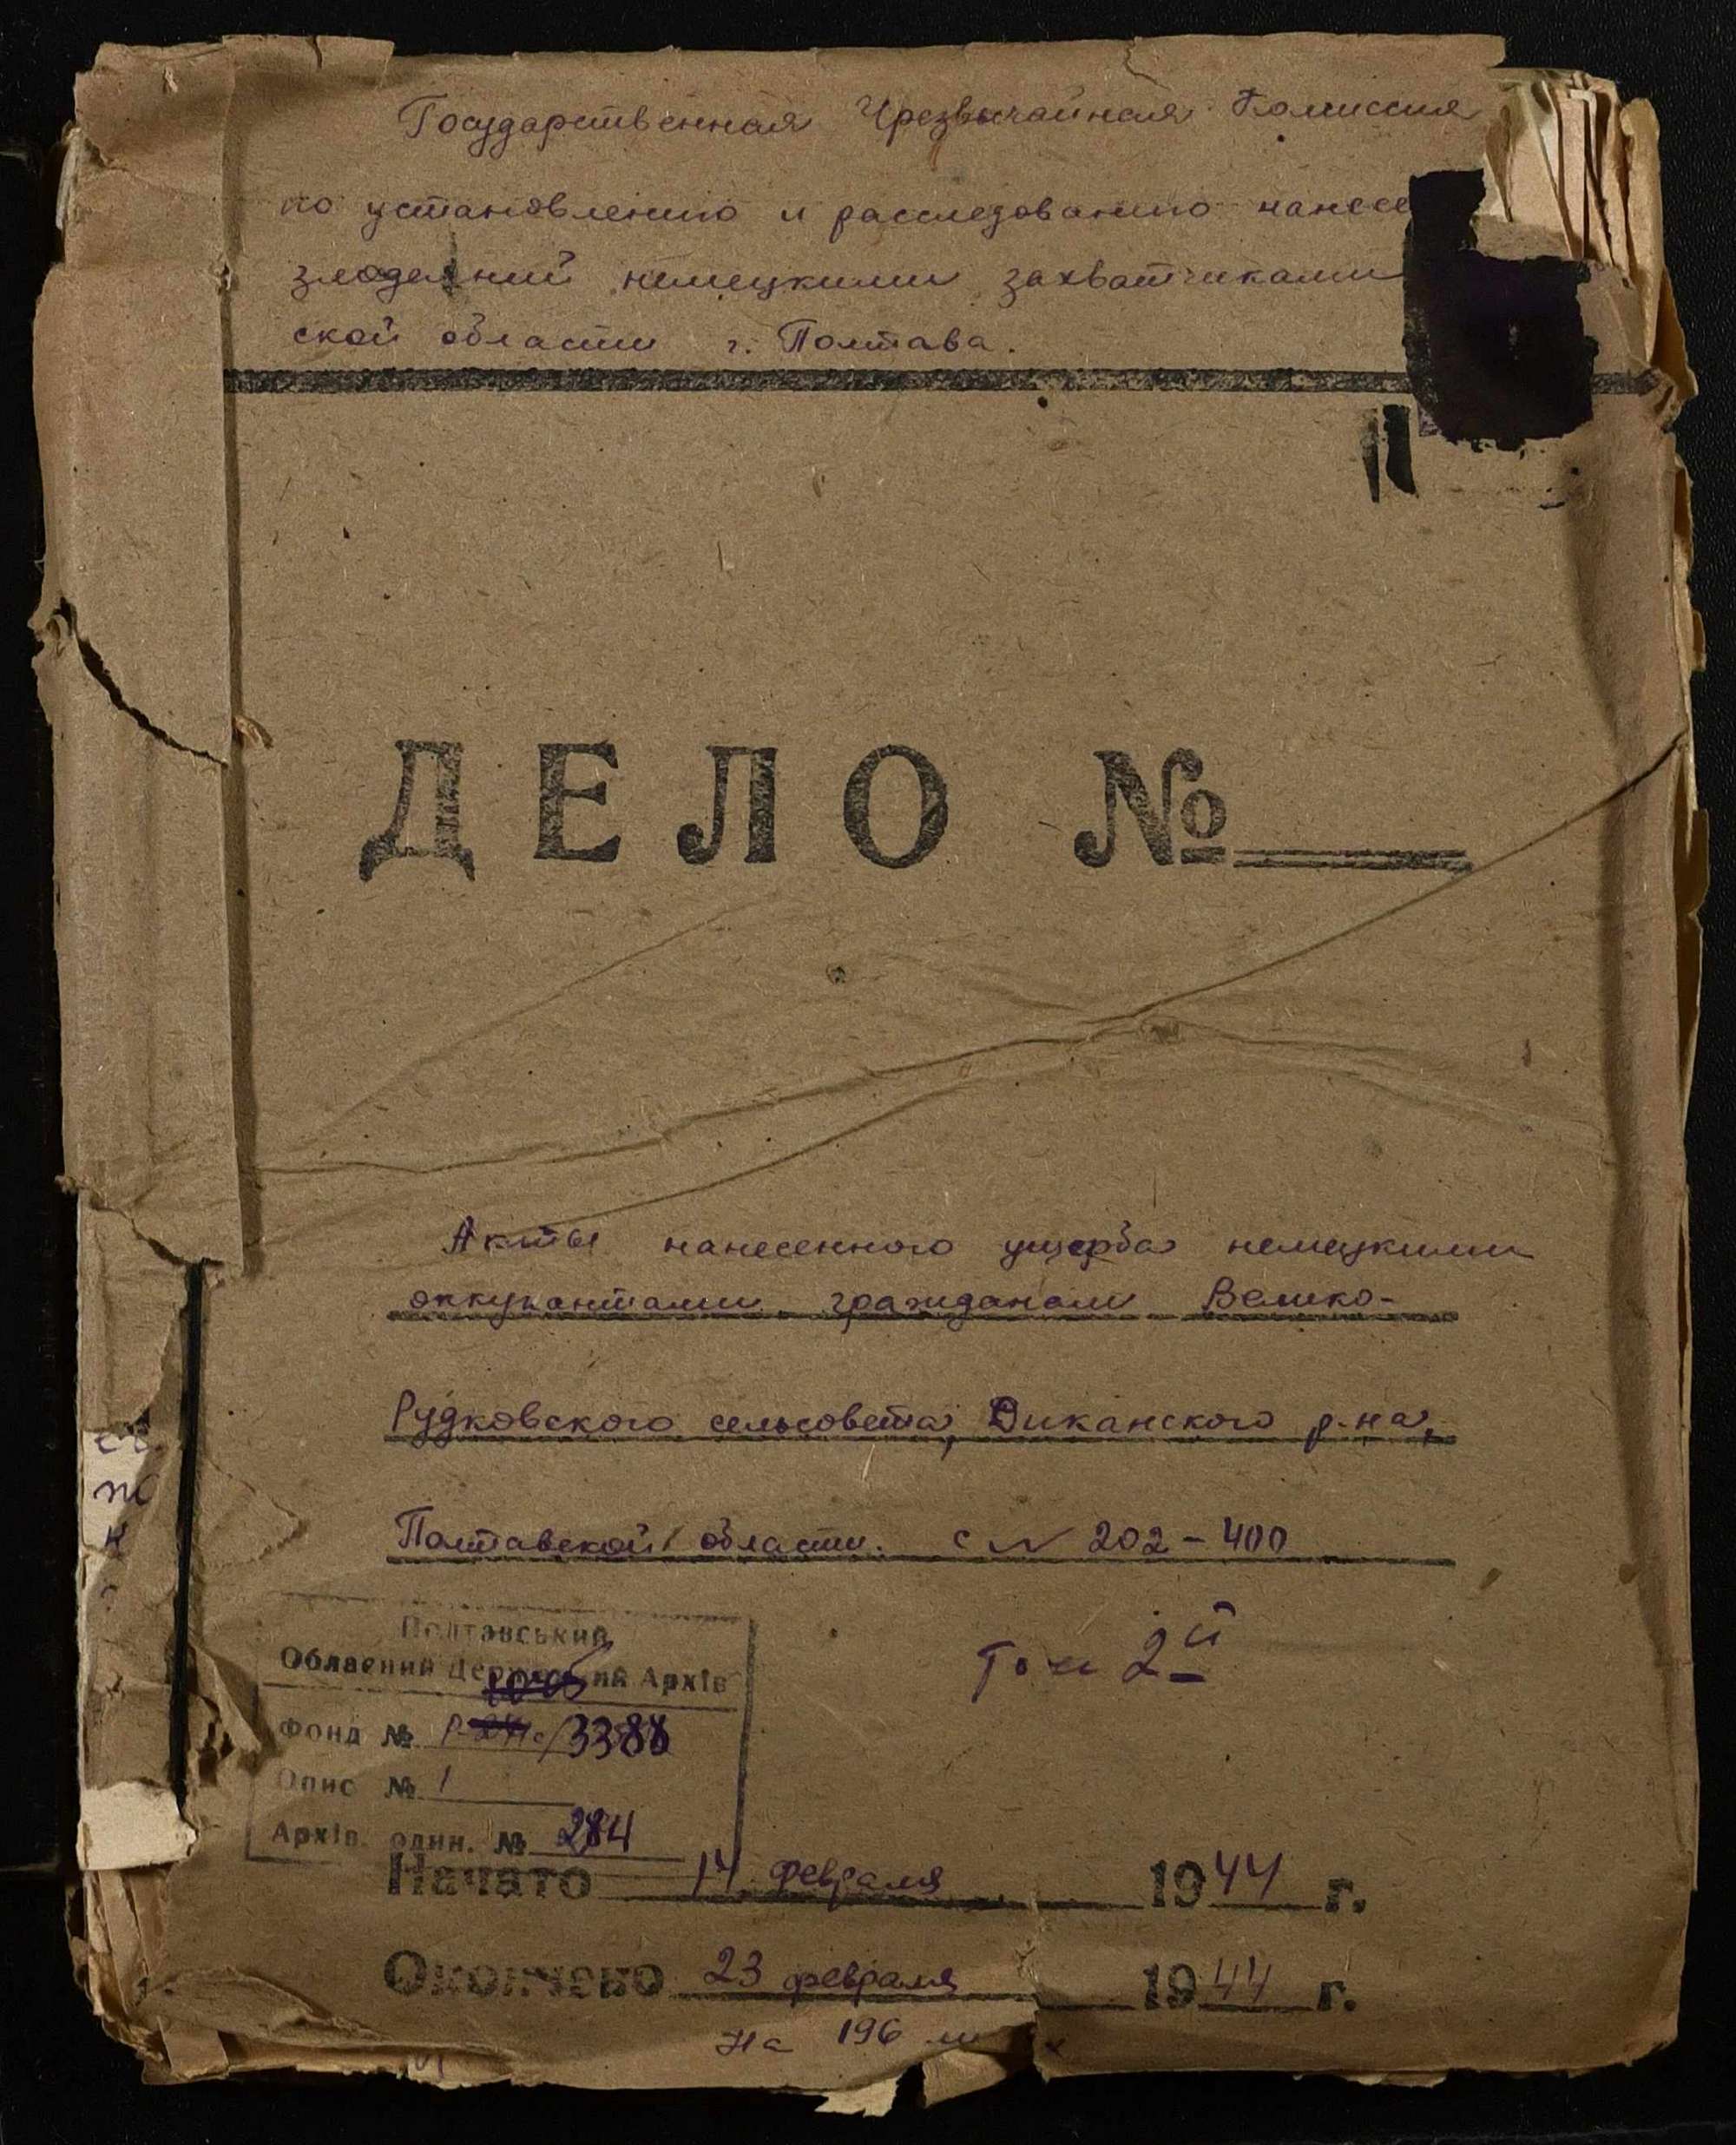 Государственная Чрезвычайная Комиссия
по установлению и расследованию нанесе
злодеяний немецкими захватчиками
ской области г. Полтава.
ДЕЛО №
Акты нанесенного ущерба немецкими
оккупантами гражданам Велико-
Рудковского сельсовета, Диканского р-на,
Полтавской области. с № 202-400
Том 2й
Полтавський
Обласний Державний Архів
Фонд № Р- /3388
Опис № 1
Архів. один. № 284
Начато 14 февраля 1944 г.
Окончено 23 февраля 1944 г.
На 196